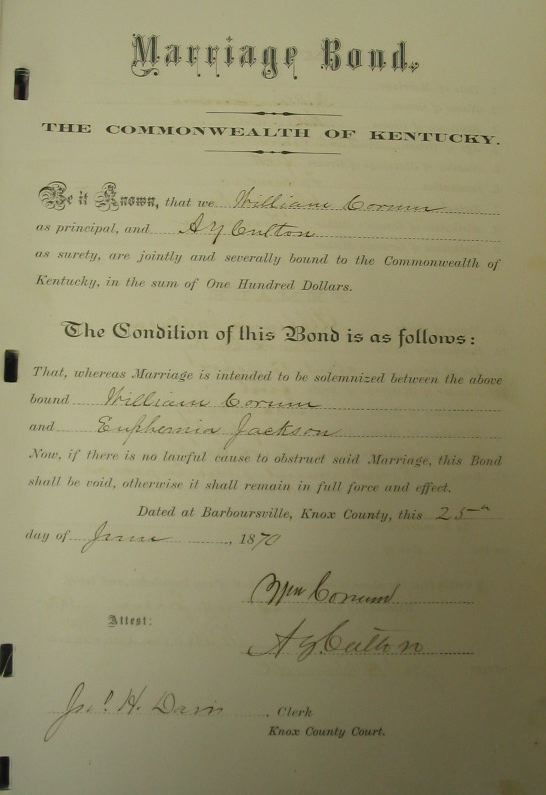 Marriage Bond,
THE COMMONWEALTH OF KENTUCKY.
Be it Known, that we William Corum
as principal, and A Y Culton
as surety, are jointly and severally bound to the Commonwealth of
Kentucky, in the sum of One Hundred Dollars.
The Condition of this Bond is as follows:
That, whereas Marriage is intended to be solemnized between the above
bound William Corum
and Euphemia Jackson
Now, if there is no lawful cause to obstruct said Marriage, this Bond
shall be void, otherwise it shall remain in full force and effect.
Dated at Barboursville, Knox County, this 25th
day of June, 1870
Wm Corum
Attest:
Culton
H. Davis, Clerk
Knox County Court.